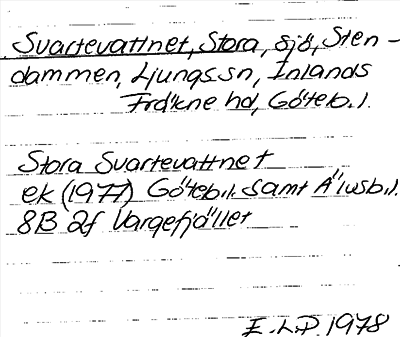 Svartevattnet, Stora, sjö, Sten-
dammen, Ljungs sn, Inlands
Fräkne hd, Göteb. l.
Stora Svartevattnet
ek (1977) Göteb. l. samt Älvsb. l.
8B 2f Vargefjället
E.L.P. 1978